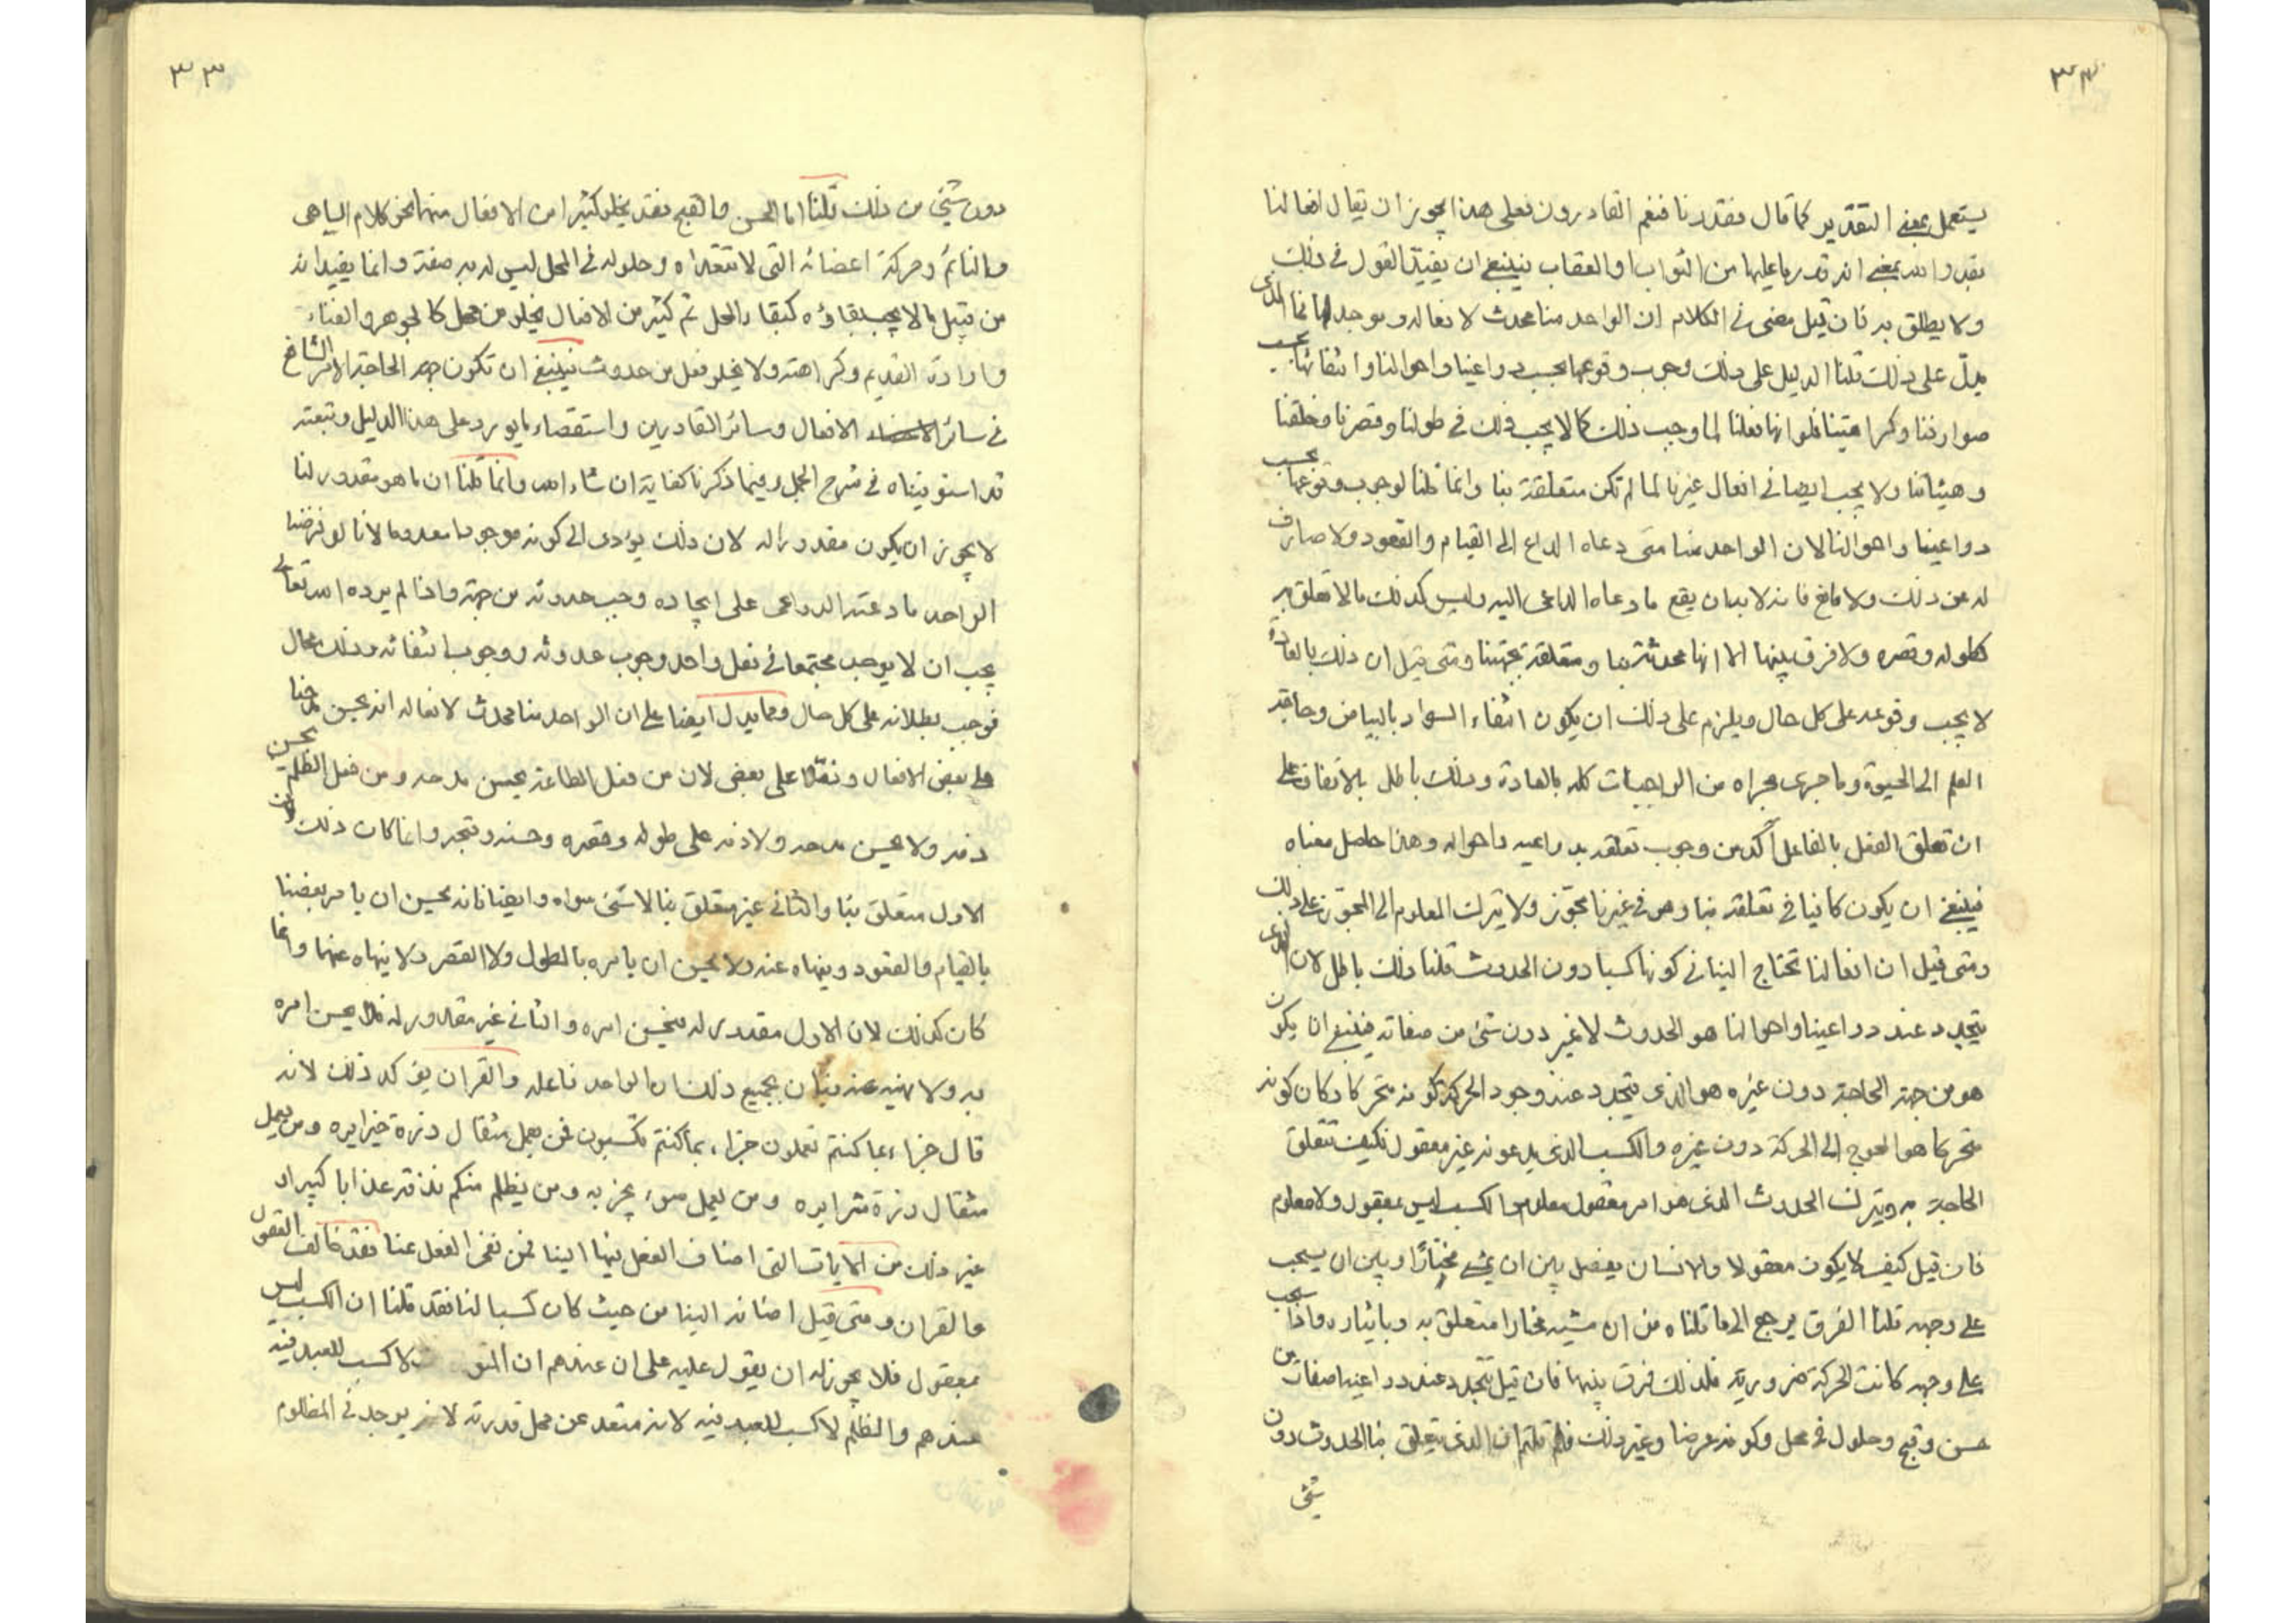 ٣٣
يستعمل بمعنى التقدير كما قال فقدرنا فنعم القادرون فعلى هذا يجوز ان يقال افعالنا
بقدر الله بمعنى انه قدر ما عليها من الثواب والعقاب فينبغي ان يقيد القول في ذلك
ولا يطلق به فان قيل مضى في الكلام ان الواحد منا محدث لافعاله وموجد لها فما الذي
يدل على ذلك قلنا الدليل على ذلك وجوب وقوعها بحسب دواعينا واحوالنا وانتفائها بحسب
صوارفنا وكراهتنا فلو انها فعلنا لما وجب ذلك كما لا يجب ذلك في طولنا وقصرنا وخلقنا
وهيئاتنا ولا يجب ايضا في افعال غيرنا لما لم تكن متعلقة بنا وانما قلنا لوجوب وقوعها بحسب
دواعينا واحوالنا لان الواحد منا متى دعاه الداع الى القيام والقعود ولا صارف
له عن ذلك ولا مانع فانه لا بد ان يقع ما دعاه الداعى اليه وليس كذلك ما لا تعلق به
كطوله وقصره ولا فرق بينها الا انها محدثة بنا ومتعلقة بجهتنا ومتى قيل ان ذلك بالعادة
لا يجب وقوعه على كل حال ويلزم على ذلك ان يكون انتفاء السواد بالبياض وحاجة
العلم الى الحيوة وما جرى مجراه من الواجبات كله بالعادة وذلك باطل بالاتفاق على
ان تعلق الفعل بالفاعل آكد من وجوب تعلقه بدواعيه واحواله وهذا حاصل معناه
فينبغي ان يكون كافيا في تعلقه بنا وهو في غيرنا مجوز ولا يترك المعلوم الى المجوز على ذلك
ومتى قيل ان افعالنا تحتاج الينا في كونها كسبا دون الحدوث قلنا ذلك باطل لان الذي
يتجدد عند دواعينا واحوالنا هو الحدوث لا غير دون شئ من صفاته فينبغي ان يكون
هو من جهة الحاجة دون غيره هو الذي يتجدد عند وجود الحركة كونه متحركا وكان كونه
متحركا هو المحوج الى الحركة دون غيره والكسب الذي يدعونه غير معقول فكيف تتعلق
الحاجة به ويترك الحدوث الذي هو امر معقول معلوم والكسب ليس بمعقول ولا معلوم
فان قيل كيف لا يكون معقولا والانسان يفصل بين ان يمشى مختارا وبين ان يسحب
على وجهه قلنا الفرق يرجع الى ما قلناه من ان مشيه مختارا متعلق به وبايثاره واذا سحب
على وجهه كانت الحركة ضرورية فلذلك فرق بينها فان قيل يتجدد عند دواعينا صفات من
حسن وقبح وحلول في محل وكونه عرضا وغير ذلك فلم قلتم ان الذي يتعلق بنا الحدوث دون
شئ
٣٣
دون شئ من ذلك قلنا اما الحسن والقبح فقد يخلو كثير من الافعال منهما نحو كلام الساهى
والنائم وحركة اعضائه التى لا تتعداه وحلوله في المحل ليس له به صفة وانما يفيد انه
من قبيل ما لا يجب بقاؤه كبقاء المحل ثم كثير من الافعال يخلو من محل كالجوهر والفناء
وارادة القديم وكراهته ولا يخلو فعل من حدوث فينبغي ان تكون جهة الحاجة الامر الشايع
في سائر الافعال وسائر القادرين واستقصاء ما يورد على هذا الدليل وتتبعته
قد استوفيناه في شرح الجمل وفيما ذكرنا كفاية ان شاء الله وانما قلنا ان ما هو مقدور لنا
لا يجوز ان يكون مقدورا له لان ذلك يؤدى الى كونه موجودا معدوما لانا لو فرضنا
الواحد ما دعته الدواعى على ايجاده وجب حدوثه من جهته واذا لم يرده الله تعالى
يجب ان لا يوجد مجتمعا في فعل واحد وجوب حدوثه ووجوب انتفائه وذلك محال
فوجب بطلانه على كل حال ومما يدل ايضا على ان الواحد منا محدث لافعاله انه يحسن مدحنا
على بعض الافعال وذمنا على بعض لان من فعل الطاعة يحسن مدحه ومن فعل الظلم يحسن
ذمه ولا يحسن مدحه ولا ذمه على طوله وقصره وحسنه وقبحه وانما كان ذلك لان
الاول متعلق بنا والثاني غير متعلق بنا لا شئ سواه وايضا فانه يحسن ان يامر بعضنا
بالقيام والقعود وينهاه عنه ولا يحسن ان يامره بالطول ولا القصر ولا ينهاه عنهما وانما
كان كذلك لان الاول مقدور له فيحسن امره والثاني غير مقدور له فلا يحسن امره
به ولا نهيه عنه فبان بجميع ذلك ان الواحد فاعله والقران يؤكد ذلك لانه
قال جزاء بما كنتم تعملون جزاء بما كنتم تكسبون فمن يعمل مثقال ذرة خيرا يره ومن يعمل
مثقال ذرة شرا يره ومن يعمل سوء يجز به ومن يظلم منكم نذقه عذابا كبيرا و
غير ذلك من الايات التى اضاف الفعل فيها الينا فمن نفى الفعل عنا فقد خالف العقول
والقران ومتى قيل اضافه الينا من حيث كان كسبا لنا فقد قلنا ان الكسب ليس
بمعقول فلا يجوز له ان يقول عليه على ان عندهم ان لا كسب للعبد فيه
عندهم والظلم لا كسب للعبد فيه لانه متعد عن محل قدرته لانه يوجد في المظلوم